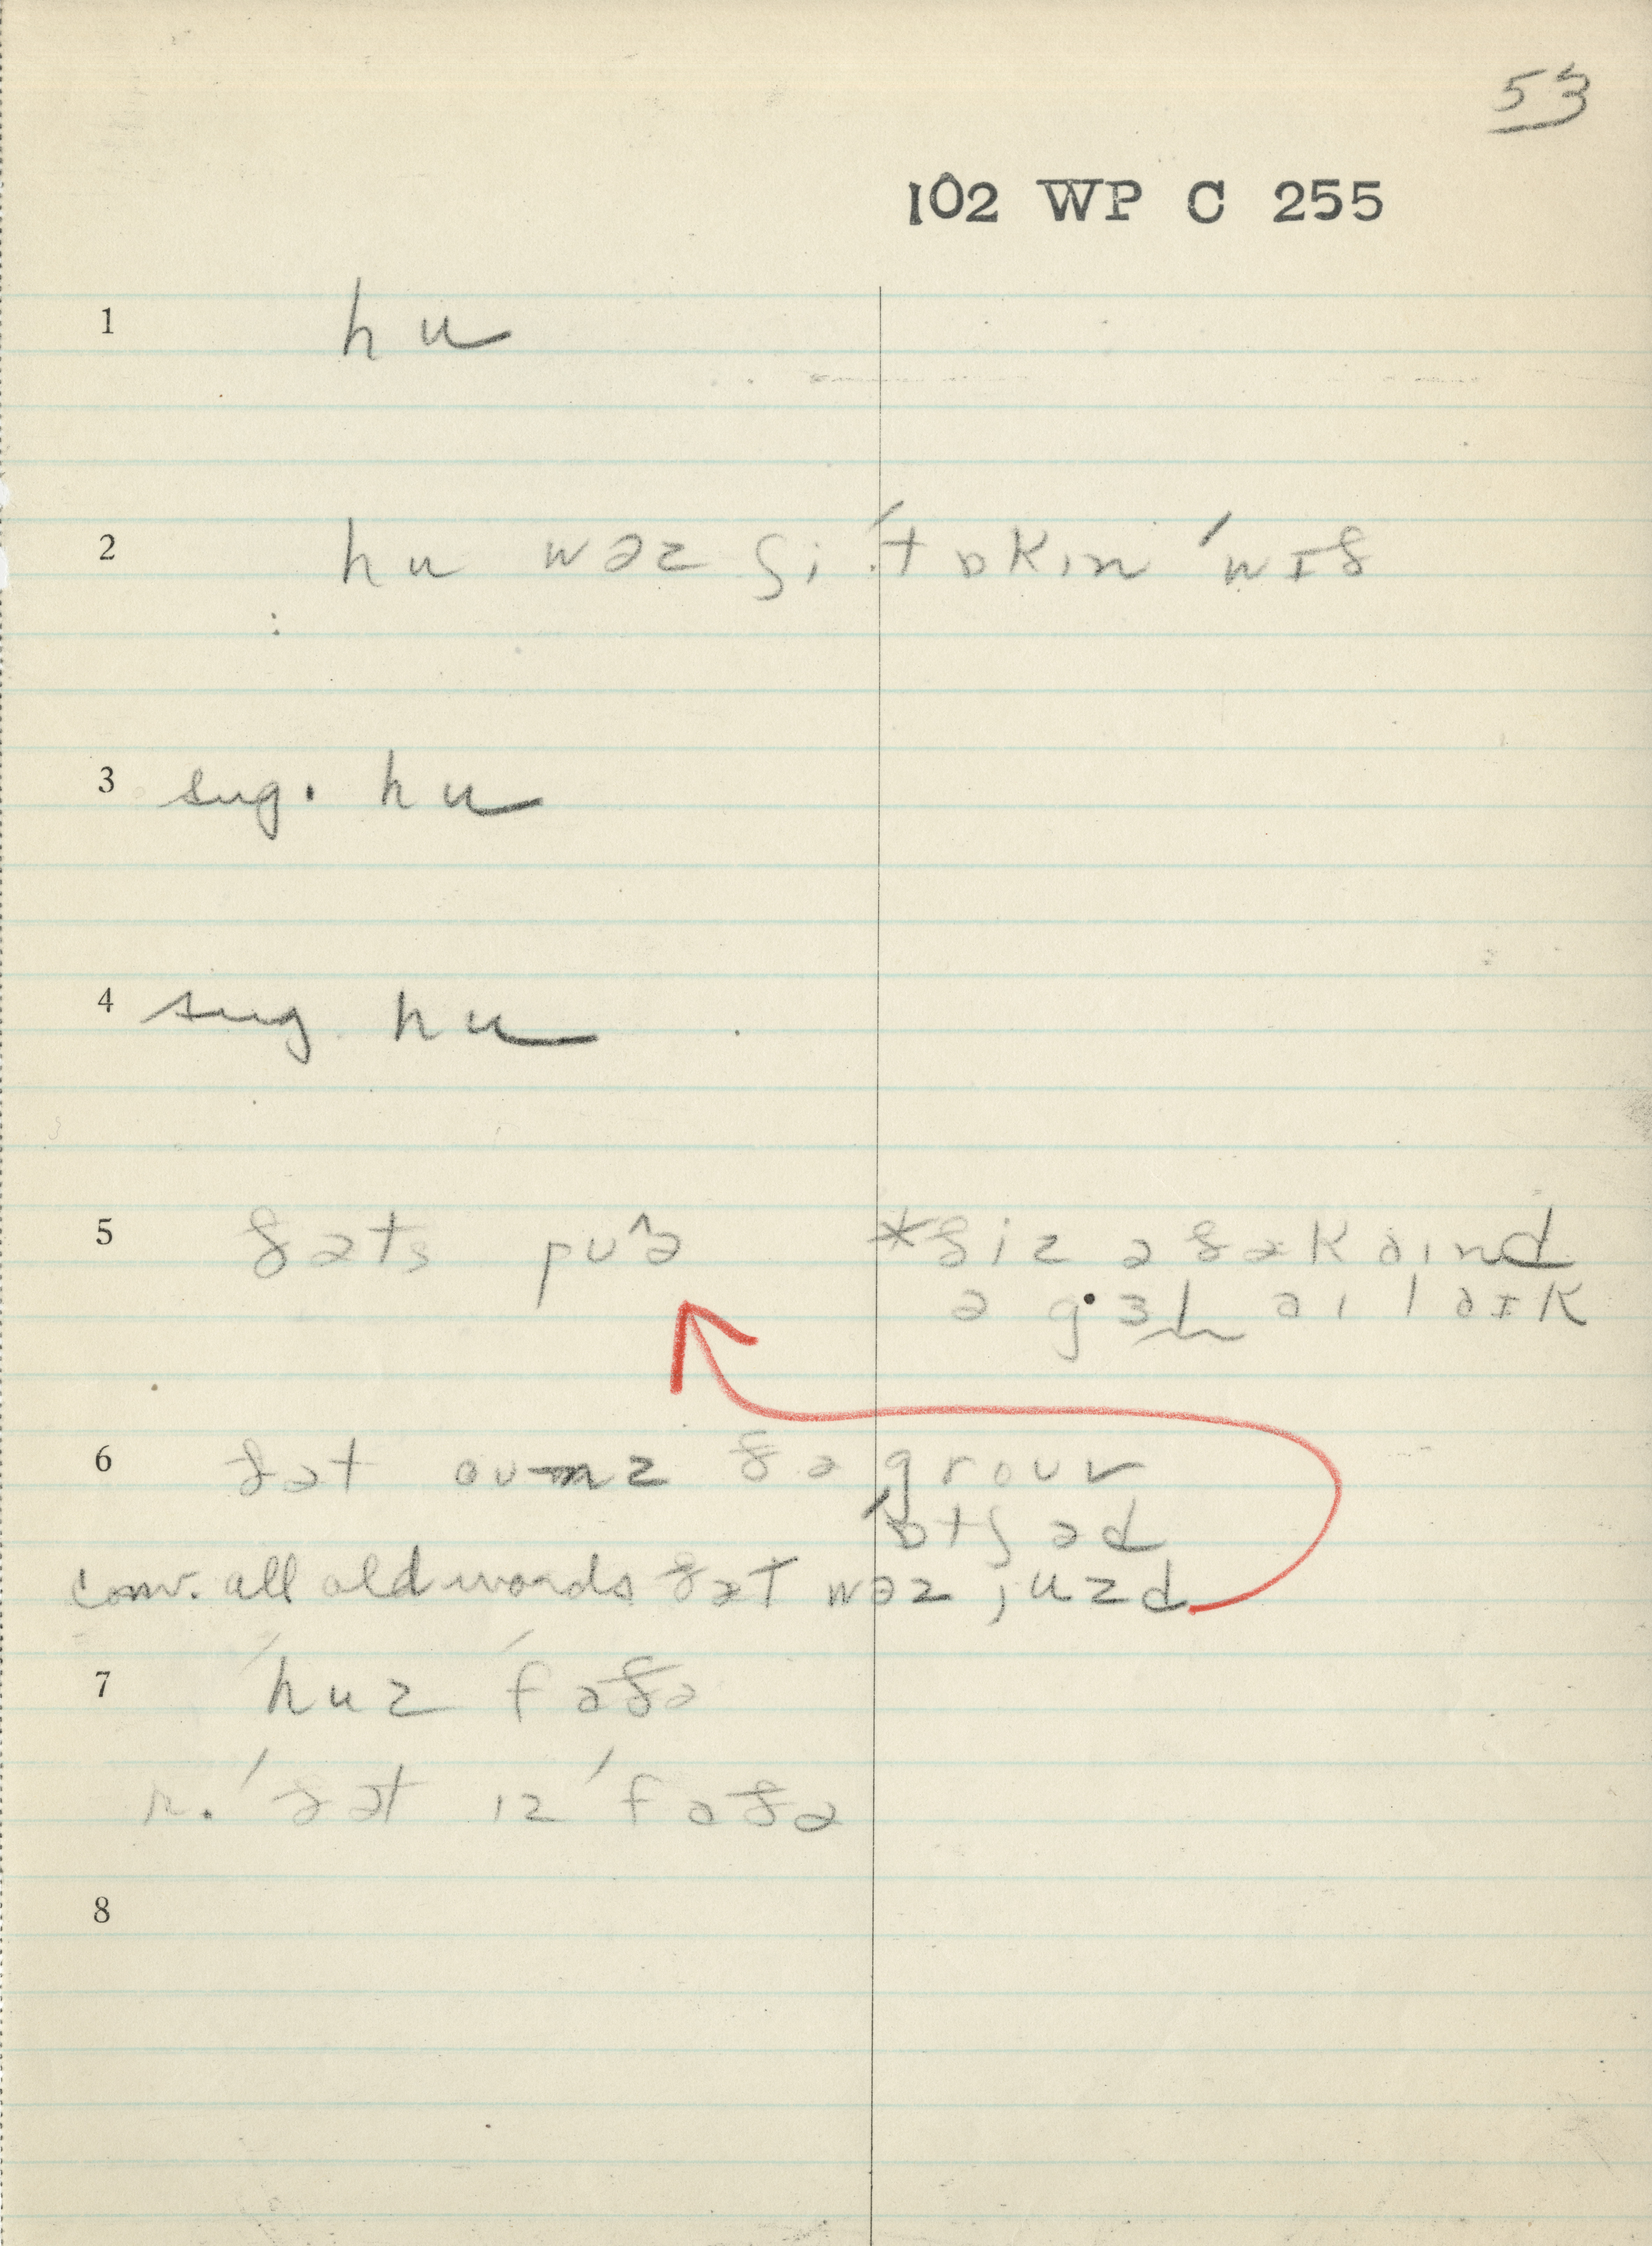 53
102 WP C 255
1 hu
2 hu wəz ʃi ˈtɒkɪn ˈwɪð
3 sug. hu
4 sug. hu
5 ðəts puə *ðiz ə ðə kaɪnd
ə gɜl aɪ laɪk
6 ðət oʊnz ðə groʊv
ˈɒtʃəd
conv. all old words ðət wəz juzd
7 ˈhuz ˈfɑðə
r. ˈðət ɪz ˈfɑðə
8